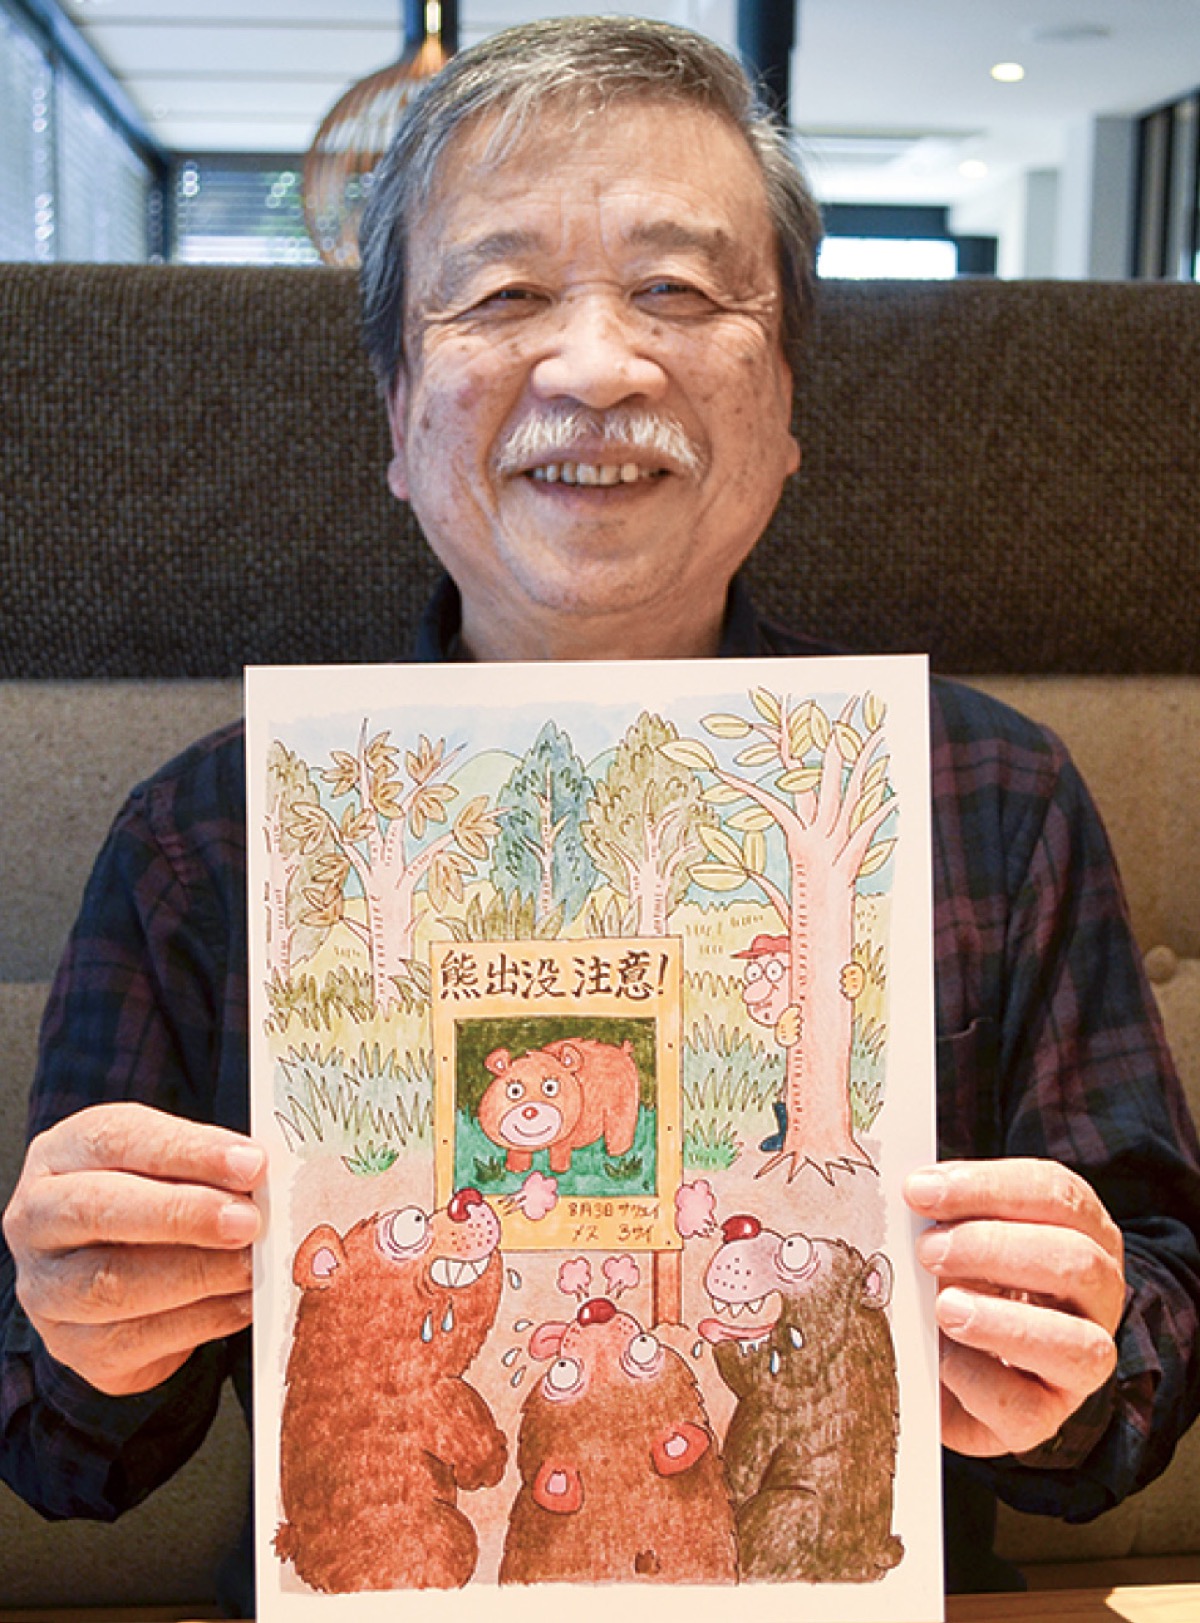 熊出没注意!
8月3日サツエイ
メス 3サイ